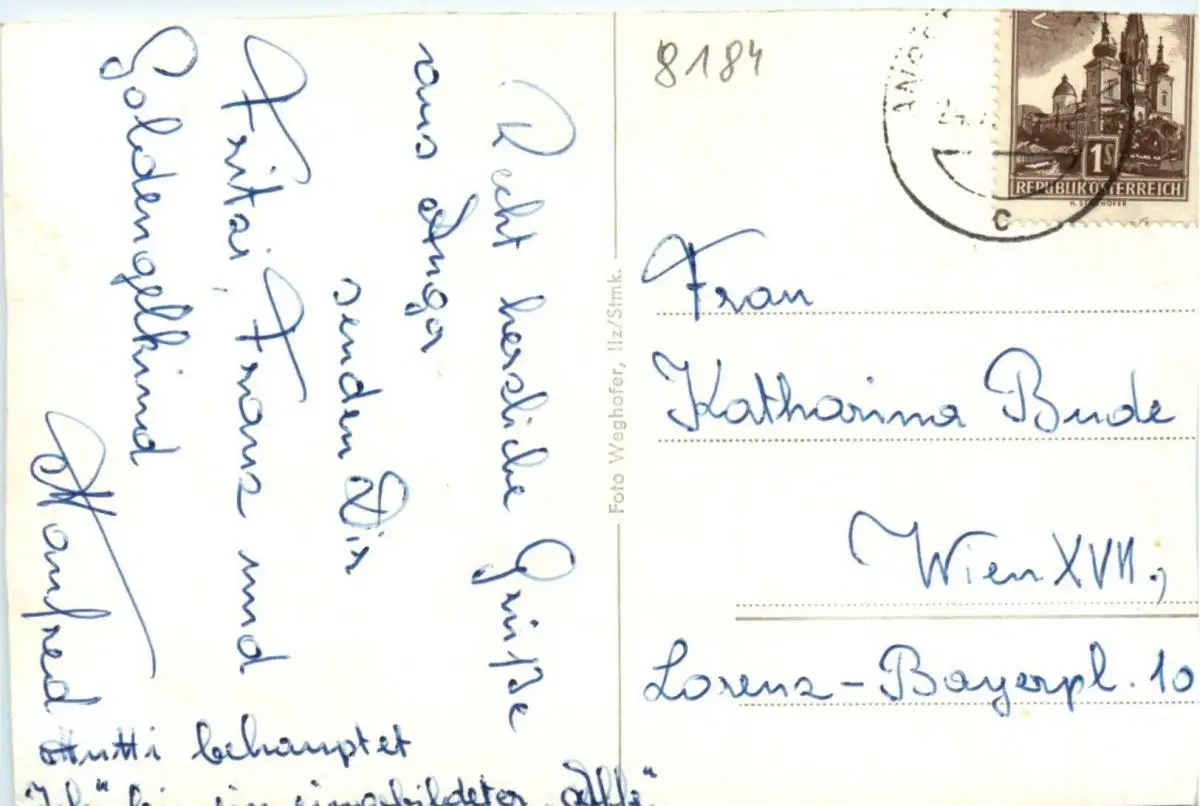 Recht herzliche Grüße
aus Anger
senden Dir
Fritzi, Franz und
Goldengelkind
Manfred
Mutti behauptet
"Ich" bin ein eingebildeter "Affe"
Foto Weghofer, Ilz/Stmk.
8184
ANGER
C
1S
REPUBLIK ÖSTERREICH
Frau
Katharina Bude
Wien XVII.,
Lorenz-Bayerpl. 10